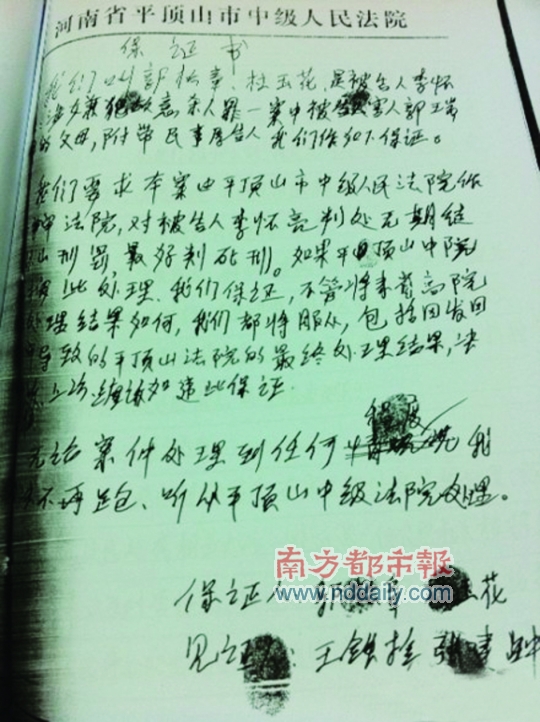 河南省平顶山市中级人民法院
保证书
我们叫郭松章、杜玉花,是被告人李怀
涉嫌犯故意杀人罪一案中被害人郭
的父母,附带民事原告人我们作如下保证。
我们要求本案由平顶山市中级人民法院作
法院,对被告人李怀亮判处无期徒
刑罚最好判死刑。如果平顶山中院
此处理、我们保证,不管将来省高院
处理结果如何,我们都将服从,包括因发回
导致的平顶山法院的最终处理结果,决
上访,此保证.
无论案件处理到任何程度我
不再、听从平顶山中级法院处理。
南方都市報
www.nddaily.com
保证人 郭 章 花
见证 : 王铁拴 张建